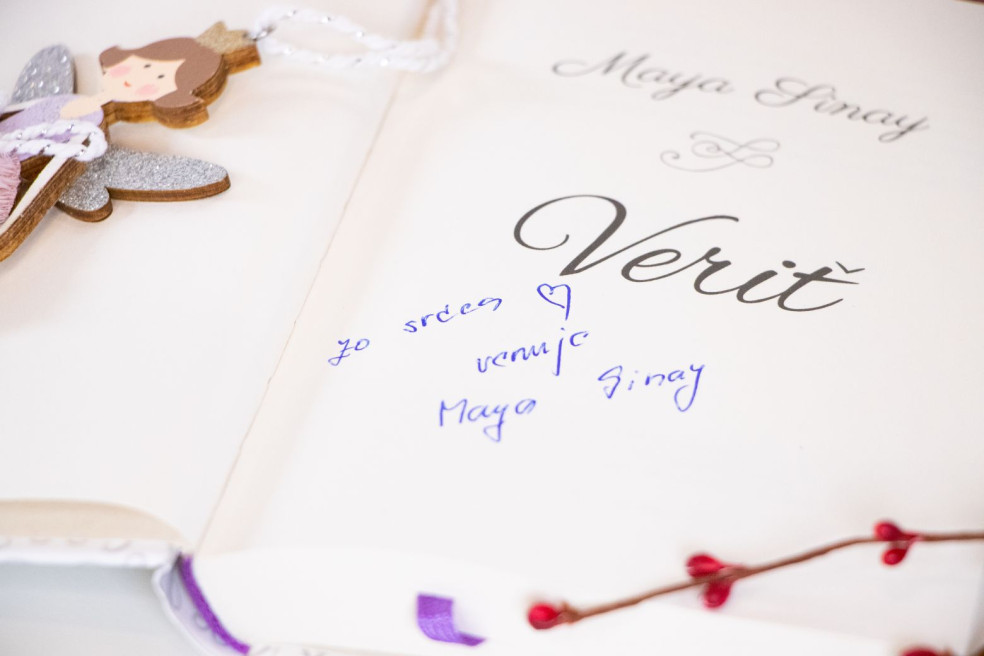 Maya Sinay
Veriť
zo srdca ♡
venuje
Maya Sinay